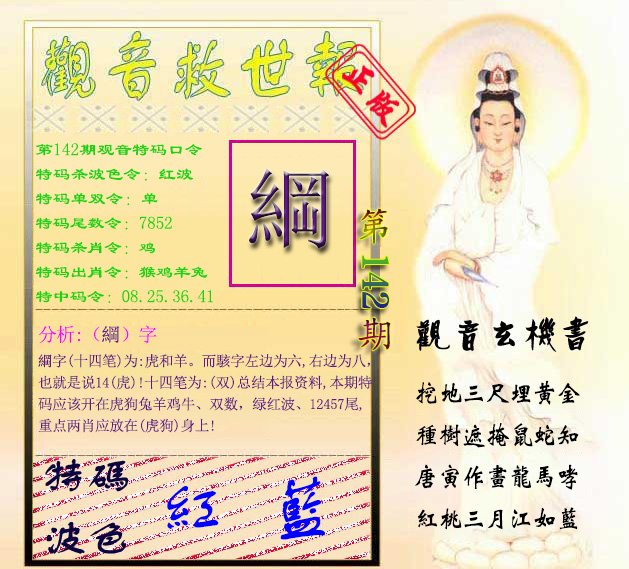 觀音救世報
正版
第142期观音特码口令
特码杀波色令：红波
特码单双令：单
特码尾数令：7852
特码杀肖令：鸡
特码出肖令：猴鸡羊兔
特中码令：08.25.36.41
綱
第142期
分析:（綱）字
綱字(十四笔)为:虎和羊。而骇字左边为六,右边为八,
也就是说14(虎)!十四笔为:(双)总结本报资料,本期特
码应该开在虎狗兔羊鸡牛、双数，绿红波、12457尾,
重点两肖应放在(虎狗)身上!
特碼
波色
紅
藍
觀音玄機書
挖地三尺埋黄金
種樹遮掩鼠蛇知
唐寅作畫龍馬哮
紅桃三月江如藍